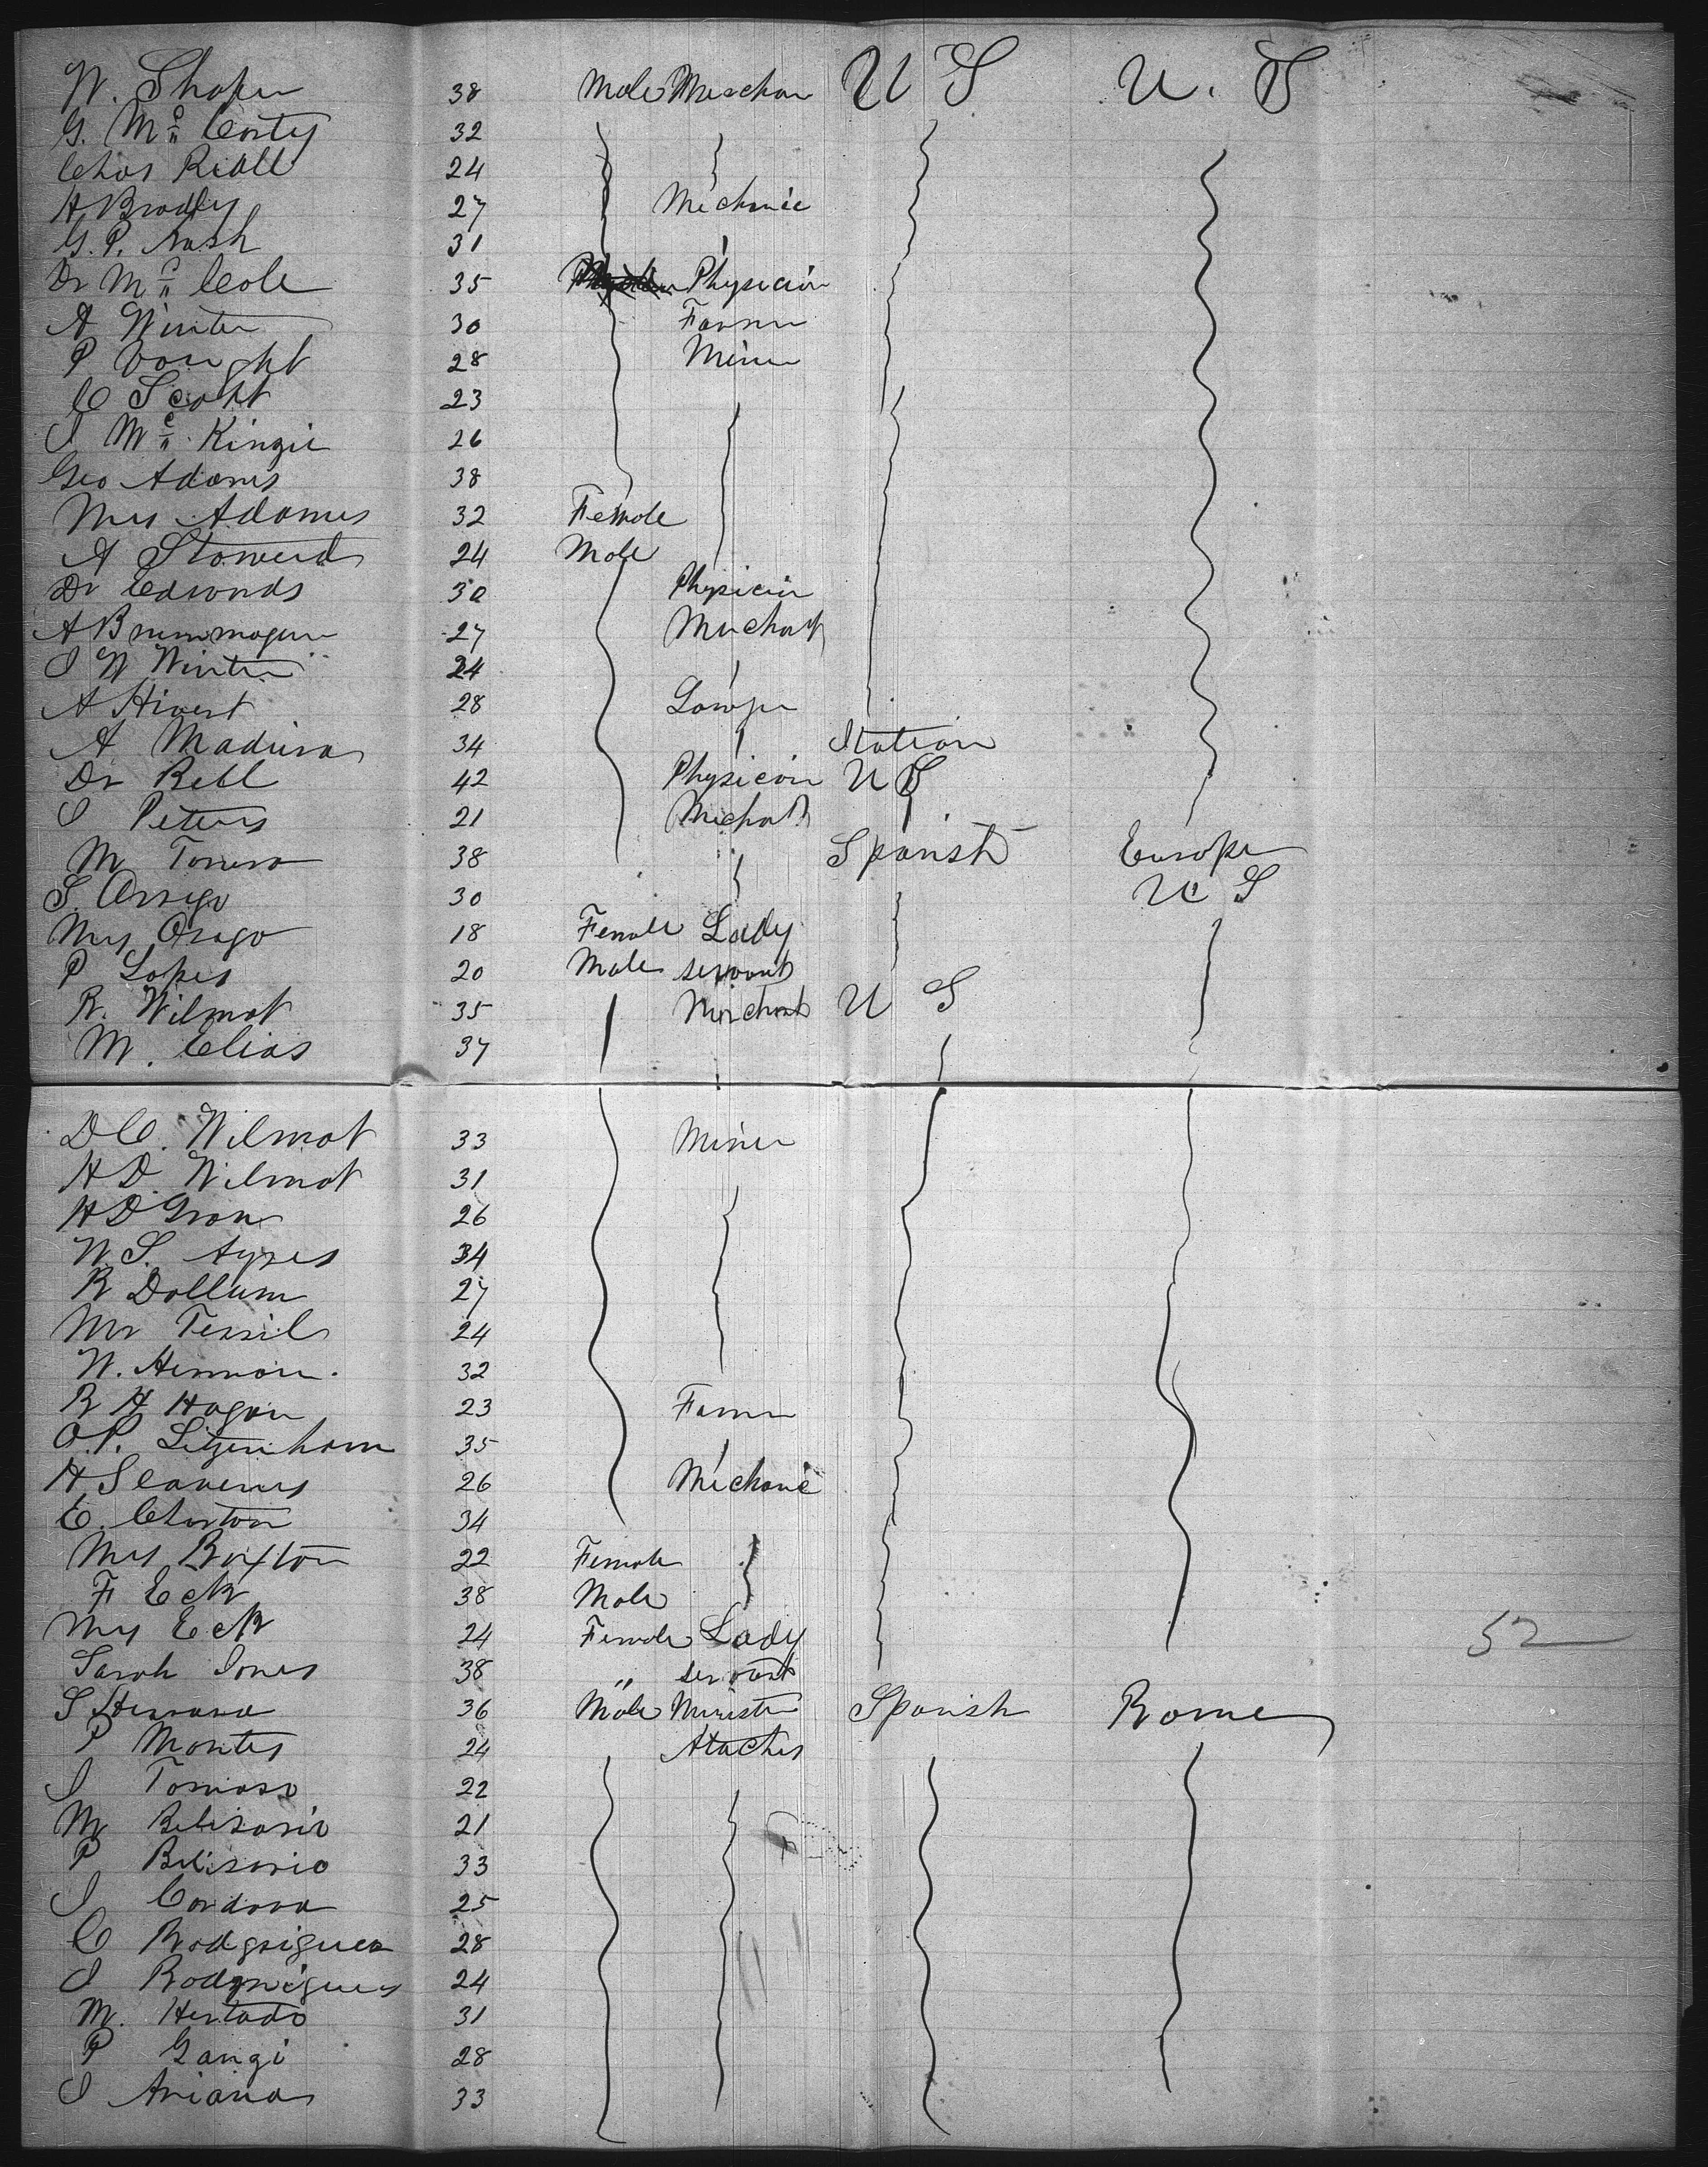 W. Shafer 38 Male Merchan U S U. S
G. Mc Carty 32
Chas Riall 24
H Brady 27 Mechanic
G. P. Nash 31
Dr Mc Cole 35 Physician
A Winter 30 Farmer
P Vought 28 Miner
C Scott 23
J Mc Kinzie 26
Geo Adams 38
Mrs Adames 32 Female
A Stoward 24 Male
Dr Edwards 30 Physician
A Brummagen 27 Merchant
J W Winter 24
A Hivert 28 Lawyer
A Madiera 34 Station
Dr Bell 42 Physician U S
J Peters 21 Merchant
M Torrero 38 Spanish Europe
S. Orrego 30 U S
Mrs Orago 18 Female Lady
P Lopes 20 Male servant
R. Wilmot 35 Merchant U S
M. Elias 37
D C. Wilmot 33 Miner
H D. Wilmot 31
H D Gran 26
W. S. Ayres 34
R Dollum 27
Mr Tessil 24
W. Hermon. 32
R H Hagan 23 Farmer
O. P. Litzenham 35
H Slavens 26 Mechanic
E. Charton 34
Mrs Boxton 22 Female
F Eck 38 Male
Mrs Eck 24 Female Lady
52
Sarah Jones 38 " servant
S Herrara 36 Male Minister Spanish Rome
P Montes 24 Ataches
J Tomaso 22
M Belisario 21
P Belisario 33
J Cordova 25
C Rodgrigues 28
J Rodgrigues 24
M. Hertado 31
P Gangi 28
J Ariana 33